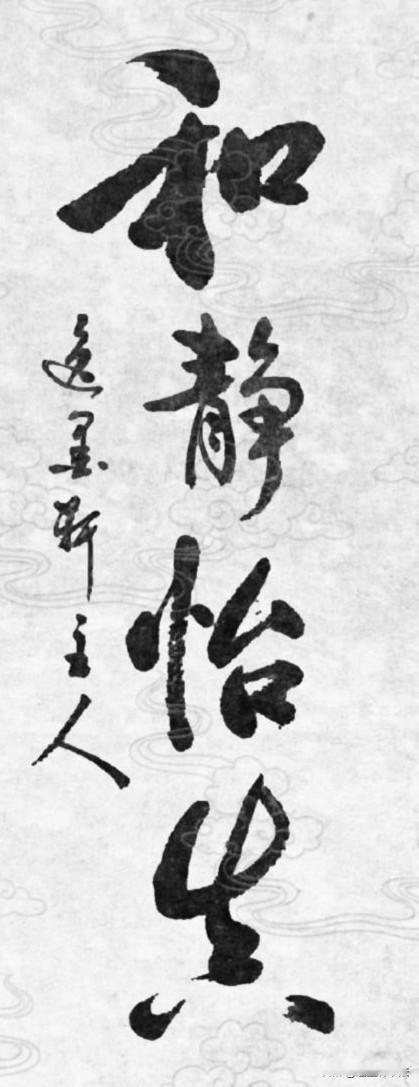 和静怡真
逸墨轩主人